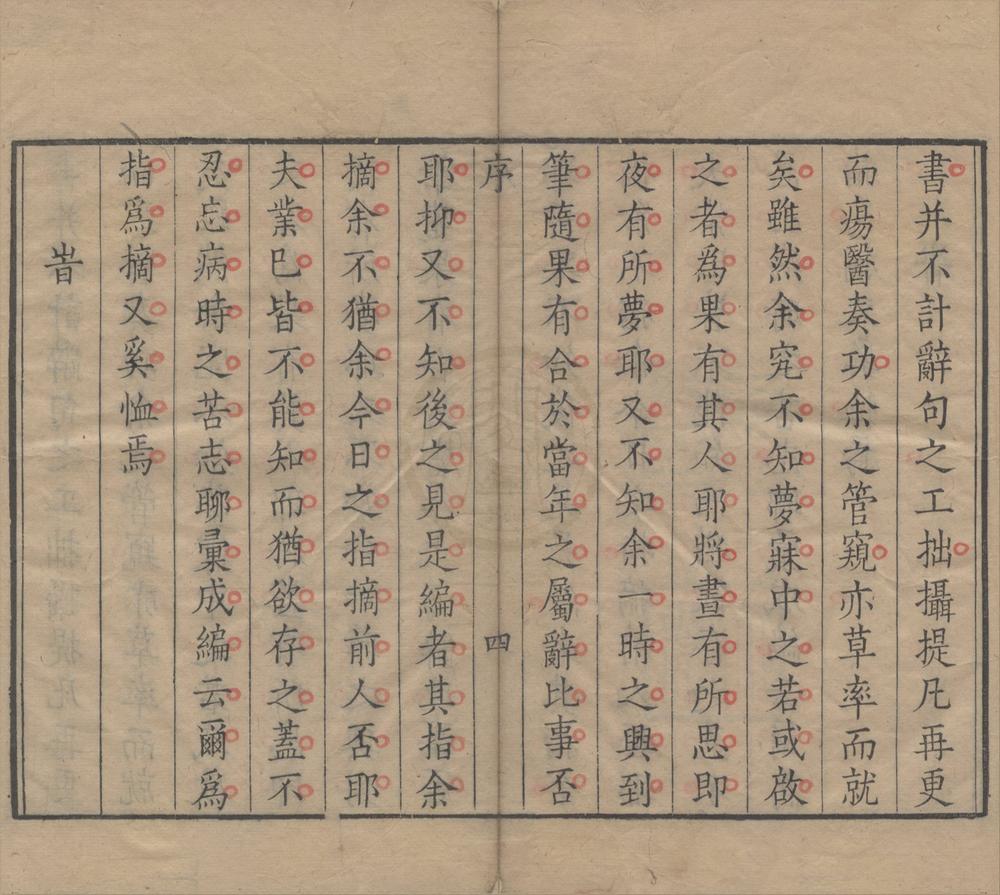 書并不計辭句之工拙攝提凡再更
而瘍醫奏功余之管窺亦草率而就
矣雖然余究不知夢寐中之若或啟
之者爲果有其人耶將晝有所思即
夜有所夢耶又不知余一時之興到
筆隨果有合於當年之屬辭比事否
序 四
耶抑又不知後之見是編者其指余
摘余不猶余今日之指摘前人否耶
夫業巳皆不能知而猶欲存之蓋不
忍忘病時之苦志聊彙成編云爾爲
指爲摘又奚恤焉
旹